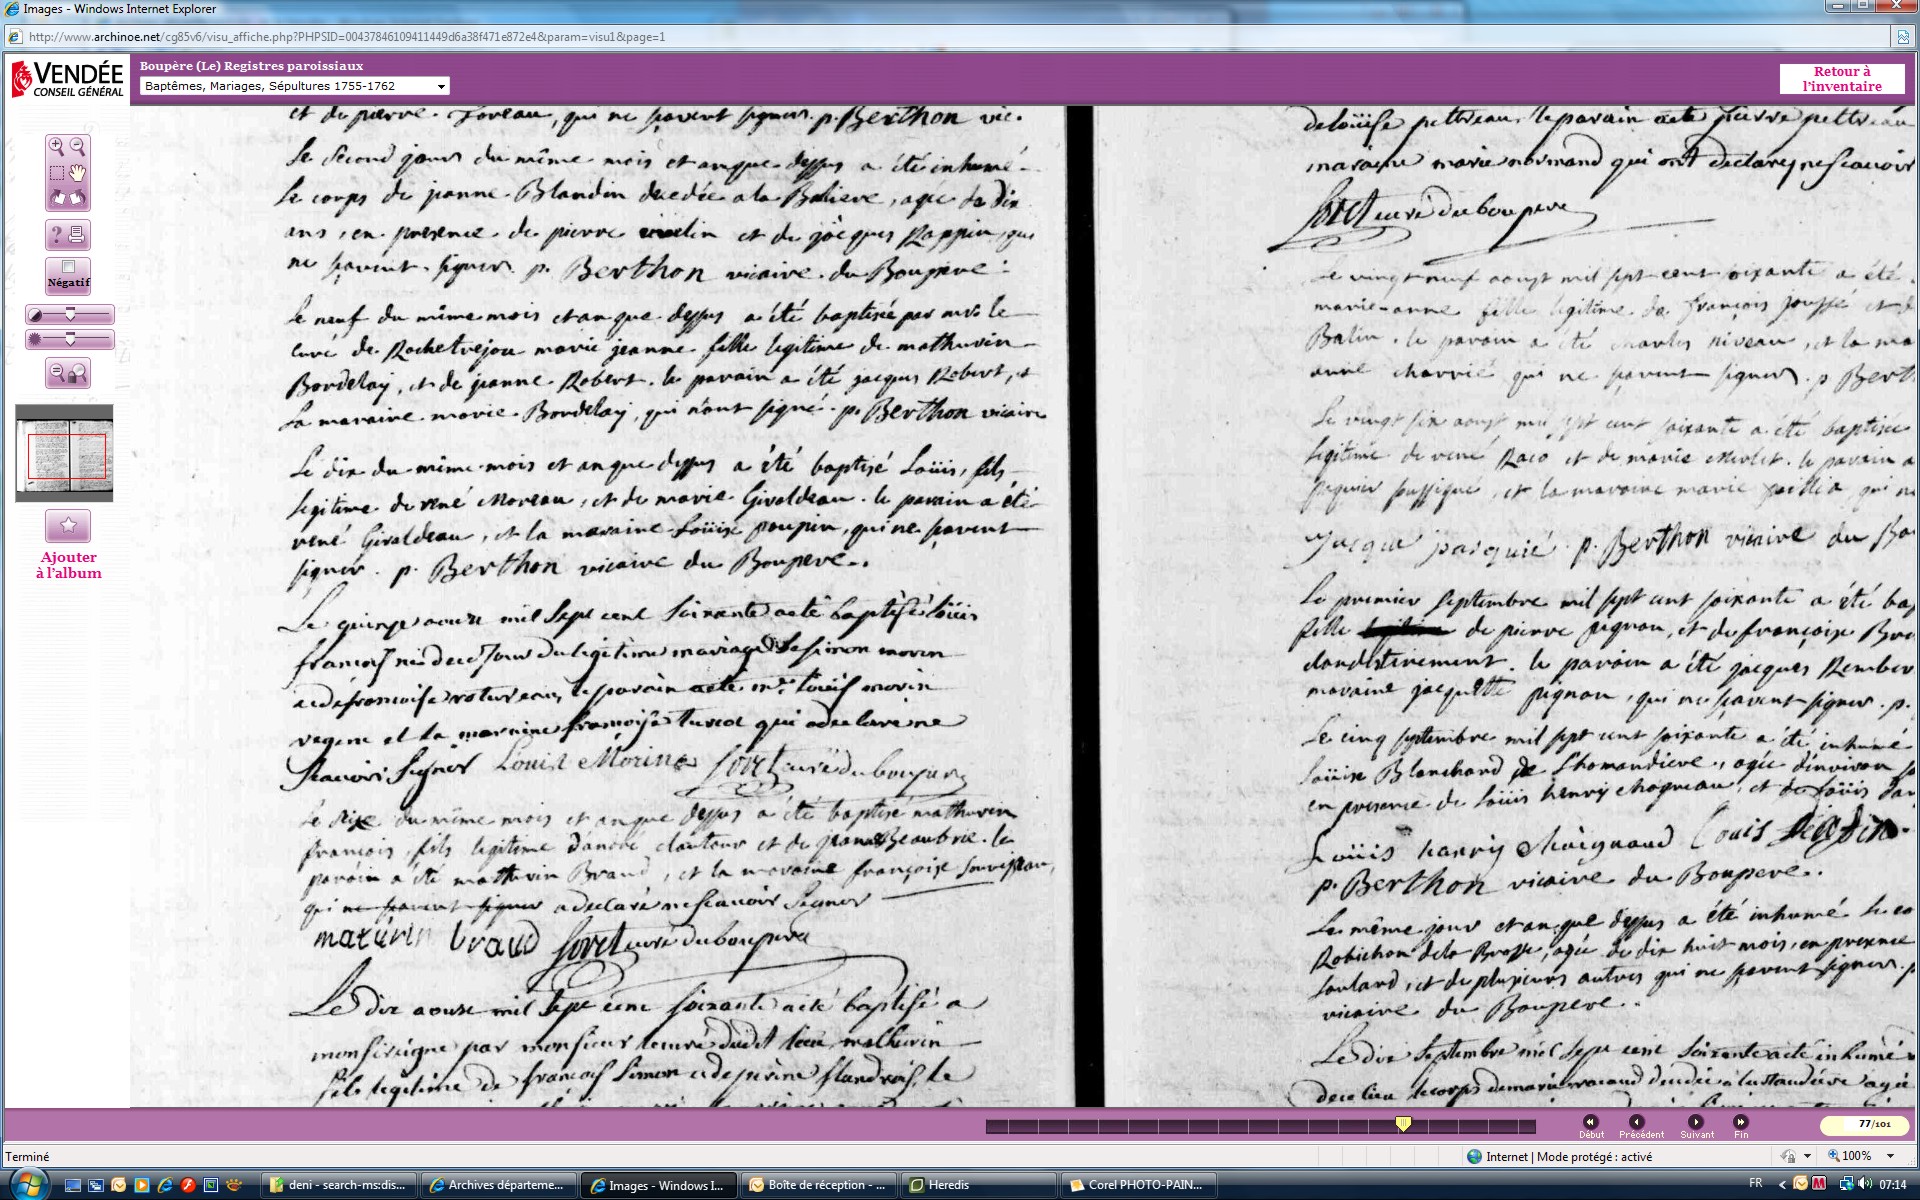 Images - Windows Internet Explorer
http://www.archinoe.net/cg85v6/visu_affiche.php?PHPSID=00437846109411449d6a38f471e872e4&param=visu1&page=1
VENDÉE
CONSEIL GÉNÉRAL
Boupère (Le) Registres paroissiaux
Baptêmes, Mariages, Sépultures 1755-1762
Retour à
l'inventaire
Négatif
Ajouter
à l'album
et de pierre qui ne savent signer. p. Berthon vic.
Le second jour du même mois et an que dessus a été inhumé
Le corps de jeanne Blandin decedée a la Baliere, agée de dix
ans, en presence de pierre et de jacques Rappin, qui
ne savent signer. p. Berthon vicaire du Boupere
Le neuf du même mois et an que dessus a été baptisée par mr. le
curé de Rochetrejou marie jeanne fille legitime de mathurin
Bordelay, et de jeanne Robert. le parain a été jacques Robert, et
La maraine marie Bordelay, qui n'ont signé. p. Berthon vicaire
Le dix du même mois et an que dessus a été baptisé Loüis, fils
legitime de rené Moreau, et de marie Giraldeau. le parain a été
rené Giraldeau, et la maraine Loüise poupin, qui ne savent
signer. p. Berthon vicaire du Boupere.
Le quinze aoust mil sept cent soixante a eté baptisé Loüis
françois né de ce jour du légitime mariage de simon morin
et de françoise rotureau, le parain a eté mr. Loüis morin
et la maraine françoise qui a declaré ne
scavoir signer Louis Morin Soret curé du boupere
Le seize du même mois et an que dessus a été baptisé mathurin
françois, fils legitime d'andré clautour et de jeanne Beaubrie. le
parain a été mathurin Braud, et la maraine françoise
qui ne savent signer a declaré ne scavoir signer
maturin braud Soret curé du boupere
Le dix aoust mil sept cent soixante a eté baptisé a
monsireigne par monsieur le curé dudit lieu, mathurin
fils legitime de françois Simon et de perine flandrois, le
de loüise peltreau, le parain a eté pierre peltreau
maraine marie normand qui ont declaré ne scavoir
Soret curé du boupere
Le vingt neuf aoust mil sept cent soixante a été
marie-anne fille legitime de françois joussé et d
Balin. le parain a été charles niveau, et la ma
anne charrié qui ne savent signer. p Berth
Le vingt six aoust mil sept cent soixante a été baptisée
legitime de rené et de marie Merlet. le parain a
et la maraine marie qui ne
pasquié p. Berthon vicaire du Bou
Le premier septembre mil sept cent soixante a été bap
fille de pierre pignon, et de françoise Bro
clandestinement. le parain a été jacques Rember
maraine jacquette pignon, qui ne savent signer. p.
Le cinq septembre mil sept cent soixante a été inhumé
Loüise Blanchard de L'homandiere, agée d'environ
en presence de Loüis henry Mogneau, et de Loüis
Loüis hanry Maignaud Louis
p. Berthon vicaire du Boupere.
Le même jour et an que dessus a été inhumé Le co
Robichon de la Brosse, agée de dix huit mois, en presence
Soulard, et de plusieurs autres qui ne savent signer. p
vicaire du Boupere.
Le dix septembre mil sept cent soixante a eté inhumé
de ce lieu le corps de marie decedée a agée
Début
Précédent
Suivant
Fin
77/101
Terminé
Internet | Mode protégé : activé
100%
deni - search-ms:dis...
Archives départeme...
Images - Windows I...
Boîte de réception - ...
Heredis
Corel PHOTO-PAIN...
FR
07:14